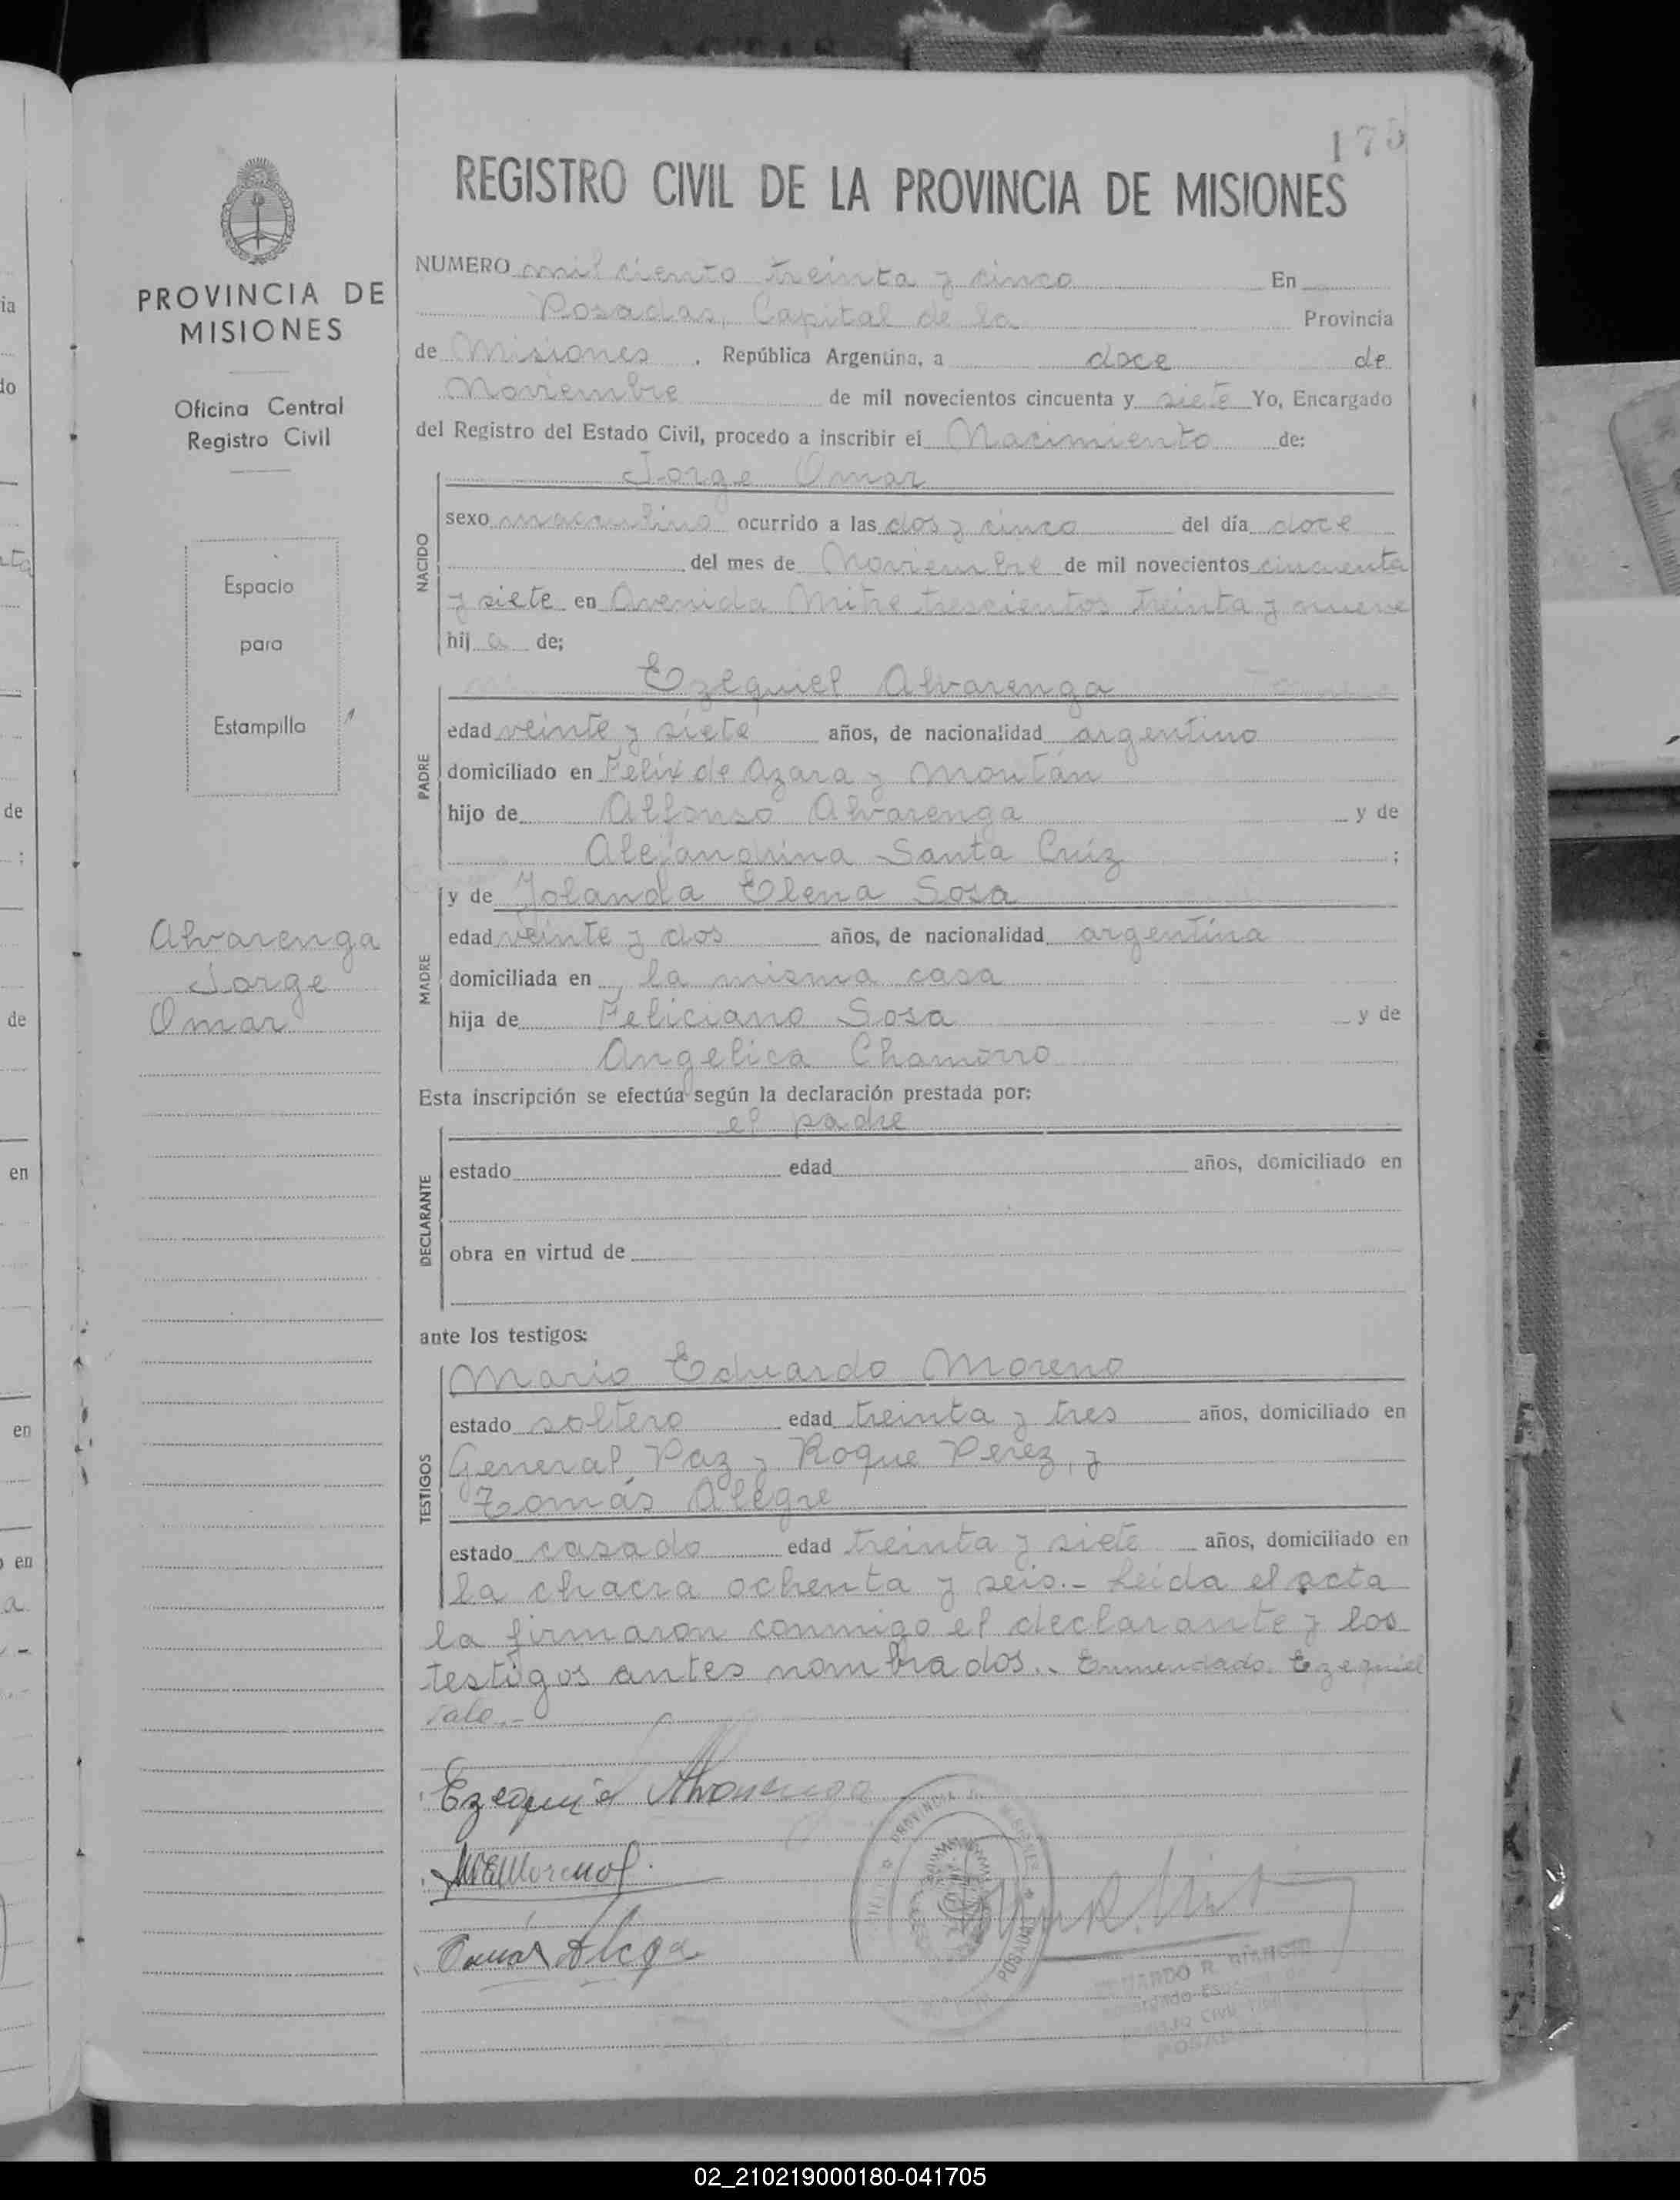 175
REGISTRO CIVIL DE LA PROVINCIA DE MISIONES
PROVINCIA DE
MISIONES
Oficina Central
Registro Civil
Espacio
para
Estampilla
Alvarenga
Jorge
Omar
NUMERO mil ciento treinta y cinco En
Posadas, Capital de la Provincia
de Misiones, República Argentina, a doce de
Noviembre de mil novecientos cincuenta y siete Yo, Encargado
del Registro del Estado Civil, procedo a inscribir el Nacimiento de:
Jorge Omar
NACIDO
sexo masculino ocurrido a las dos y cinco del día doce
del mes de Noviembre de mil novecientos cincuenta
y siete en Avenida Mitre trescientos treinta y nueve
hij o de;
Ezequiel Alvarenga
PADRE
edad veinte y siete años, de nacionalidad argentino
domiciliado en Félix de Azara y
hijo de Alfonso Alvarenga y de
Alejandrina Santa Cruz ;
y de Yolanda Elena Sosa
MADRE
edad veinte y dos años, de nacionalidad argentina
domiciliada en la misma casa
hija de Feliciano Sosa y de
Angelica Chamorro
Esta inscripción se efectúa según la declaración prestada por:
el padre
DECLARANTE
estado edad años, domiciliado en
obra en virtud de
ante los testigos:
Mario Eduardo Moreno
TESTIGOS
estado soltero edad treinta y tres años, domiciliado en
General Paz y Roque Perez, y
Tomás Alegre
estado casado edad treinta y siete años, domiciliado en
la chacra ochenta y seis.- Leida el acta
la firmaron conmigo el declarante y los
testigos antes nombrados.. Enmendado. Ezequiel
Vale.-
Ezequiel Alvarenga
MEMoreno
PROVINCIA DE MISIONES
POSADAS
02_210219000180-041705